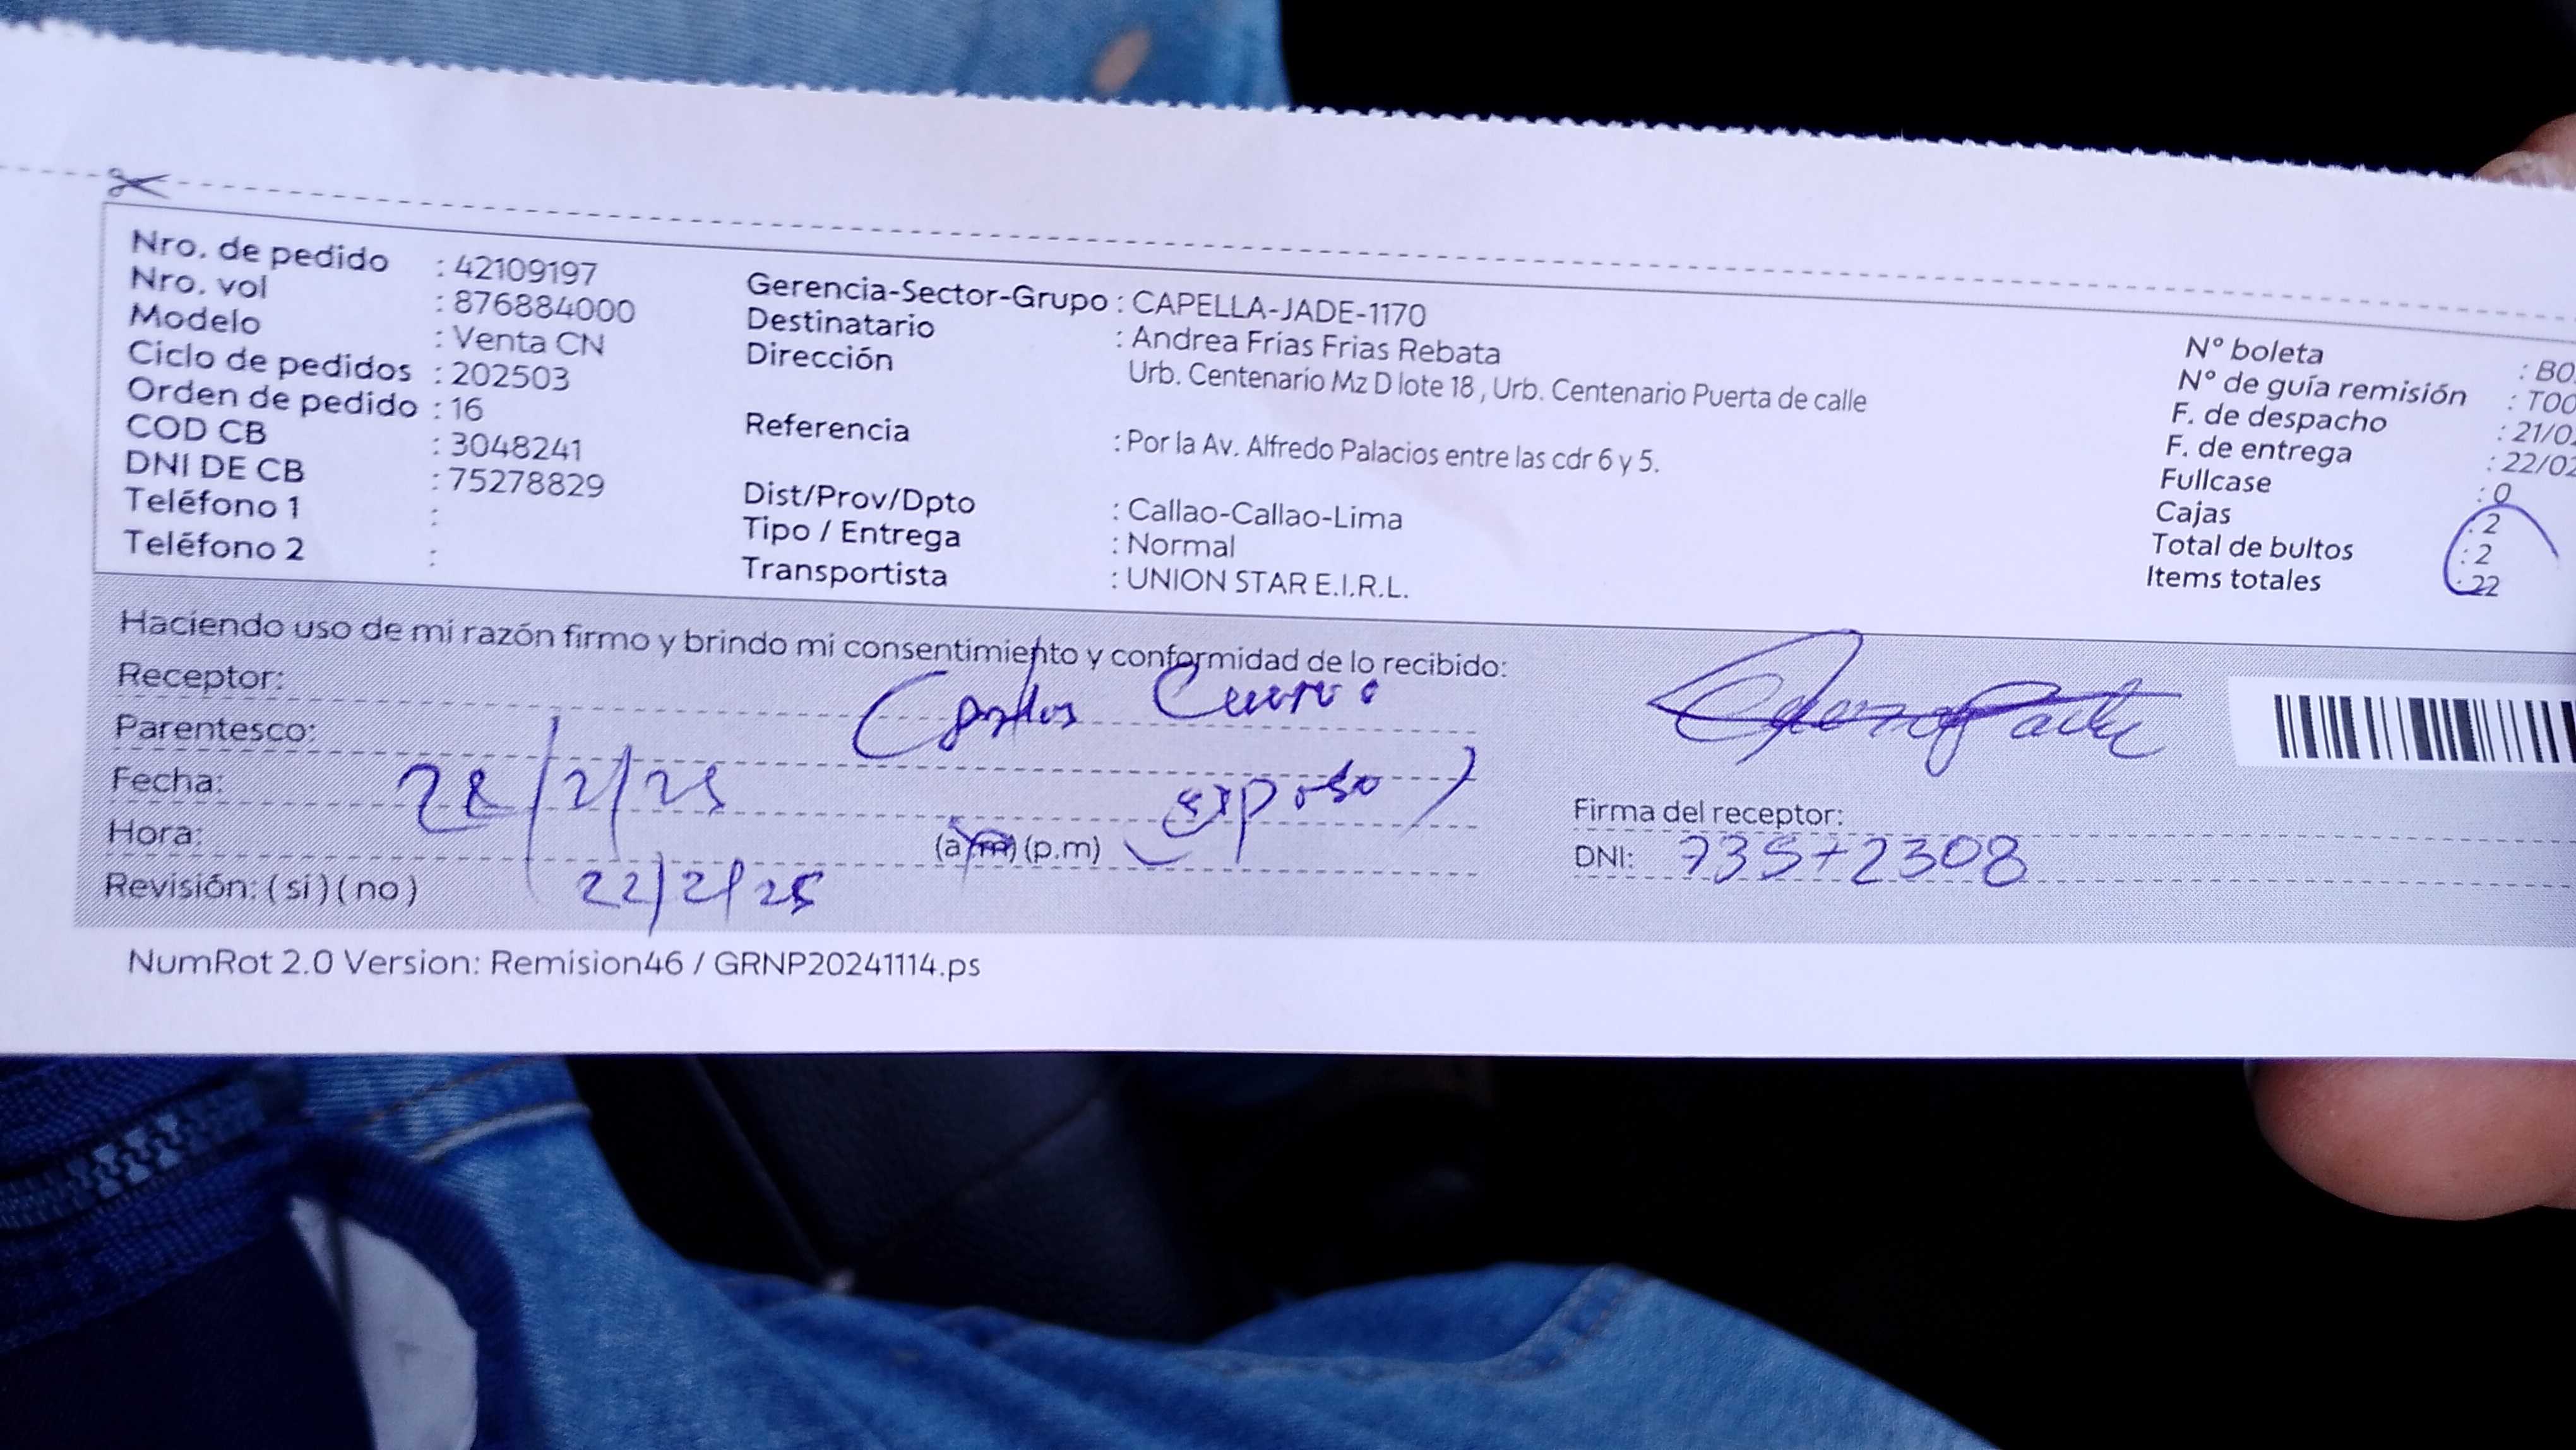 Nro. de pedido : 42109197
Nro. vol : 876884000
Modelo : Venta CN
Ciclo de pedidos : 202503
Orden de pedido : 16
COD CB : 3048241
DNI DE CB : 75278829
Teléfono 1 :
Teléfono 2 :
Gerencia-Sector-Grupo : CAPELLA-JADE-1170
Destinatario : Andrea Frias Frias Rebata
Dirección Urb. Centenario Mz D lote 18 , Urb. Centenario Puerta de calle
Referencia : Por la Av. Alfredo Palacios entre las cdr 6 y 5.
Dist/Prov/Dpto : Callao-Callao-Lima
Tipo / Entrega : Normal
Transportista : UNION STAR E.I.R.L.
N° boleta : BO
N° de guía remisión : T00
F. de despacho : 21/0
F. de entrega : 22/02
Fullcase : 0
Cajas : 2
Total de bultos : 2
Items totales : 22
Haciendo uso de mi razón firmo y brindo mi consentimiento y conformidad de lo recibido:
Receptor: Carlos
Parentesco: esposo)
Fecha: /2/25
Hora: (a.m) (p.m)
Revisión: ( si ) ( no ) 22/2/25
Firma del receptor:
DNI: 73572308
NumRot 2.0 Version: Remision46 / GRNP20241114.ps